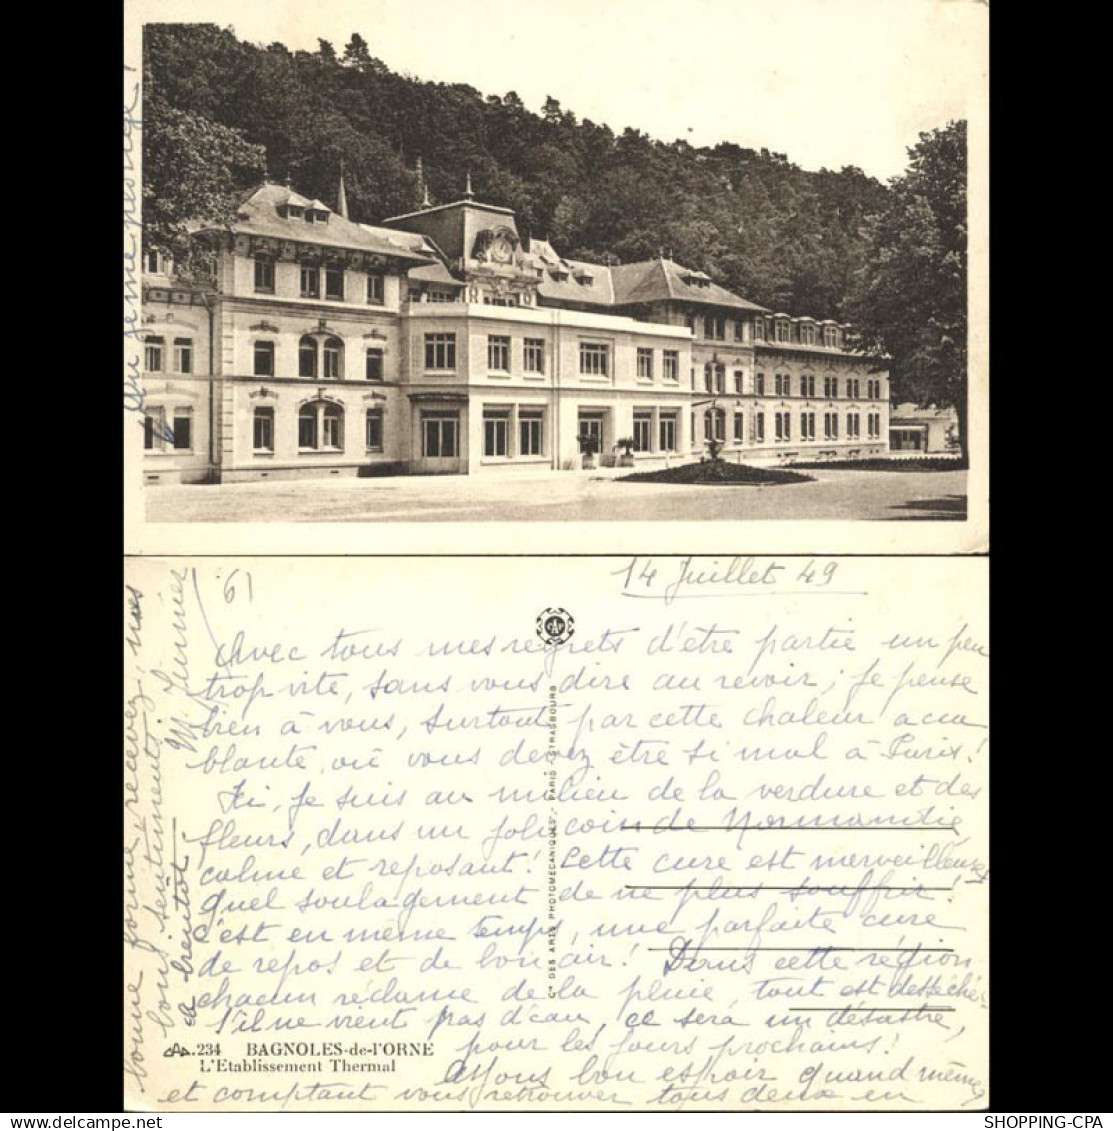 14 Juillet 49
61
Avec tous mes regrets d'être partie un peu
trop vite, sans vous dire au revoir; je pense
bien à vous, surtout par cette chaleur acca
blante, où vous devez être si mal à Paris!
Ici, je suis au milieu de la verdure et des
fleurs, dans un joli coin de Normandie,
calme et reposant! Cette cure est merveilleuse,
quel soulagement de ne plus souffrir!
c'est en même temps, une parfaite cure
de repos et de bon air! Dans cette région
chacun réclame de la pluie, tout est desséché.
S'il ne vient pas d'eau, ce sera un désastre,
pour les jours prochains!
Ayons bon espoir quand même,
et comptant vous retrouver tous deux en
bonne forme recevez, mes
bons sentiments
et à bientôt
M.
Cie DES ARTS PHOTOMÉCANIQUES - PARIS - STRASBOURG
CAP
CAP. 234 BAGNOLES-de-l'ORNE
L'Etablissement Thermal
SHOPPING-CPA